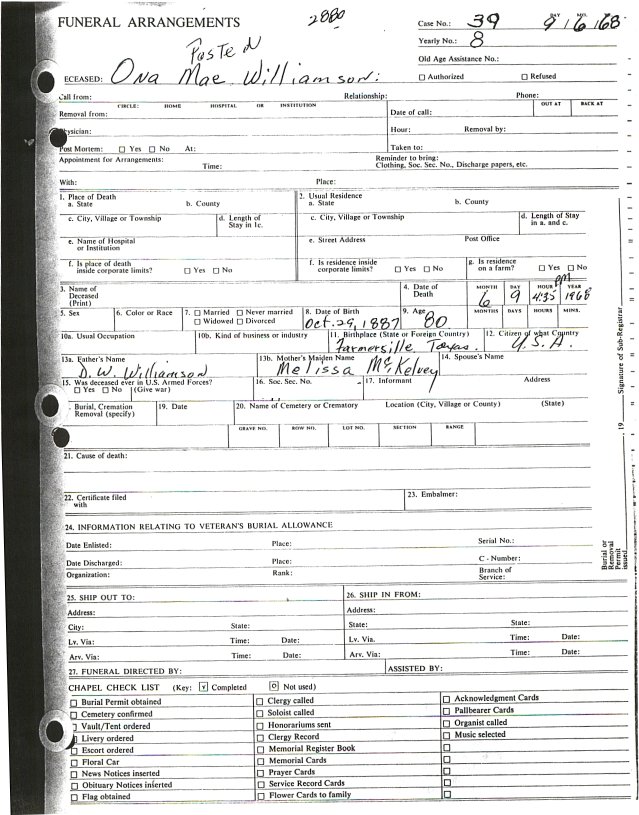 FUNERAL ARRANGEMENTS
2880
Case No.: 39 9 6 68
Yearly No.: 8
Old Age Assistance No.:
Authorized Refused
Posted
ECEASED: Ona Mae Williamson:
Call from: Relationship: Phone:
CIRCLE: HOME HOSPITAL OR INSTITUTION OUT AT BACK AT
Removal from: Date of call:
Physician: Hour: Removal by:
Post Mortem: Yes No At: Taken to:
Appointment for Arrangements: Time: Reminder to bring:
Clothing, Soc. Sec. No., Discharge papers, etc.
With: Place:
1. Place of Death 2. Usual Residence
a. State b. County a. State b. County
c. City, Village or Township d. Length of Stay in 1c. c. City, Village or Township d. Length of Stay in a. and c.
e. Name of Hospital or Institution e. Street Address Post Office
f. Is place of death inside corporate limits? Yes No f. Is residence inside corporate limits? Yes No g. Is residence on a farm? Yes No
3. Name of Deceased (Print) 4. Date of Death MONTH DAY HOUR YEAR
6 9 4:35 PM 1968
5. Sex 6. Color or Race 7. Married Never married Widowed Divorced 8. Date of Birth 9. Age MONTHS DAYS HOURS MINS.
Oct. 29, 1887 80
10a. Usual Occupation 10b. Kind of business or industry 11. Birthplace (State or Foreign Country) 12. Citizen of what Country
Farmersville Texas. U.S.A.
13a. Father's Name 13b. Mother's Maiden Name 14. Spouse's Name
D. W. Williamson Melissa McKelvey
15. Was deceased ever in U.S. Armed Forces? Yes No (Give war) 16. Soc. Sec. No. 17. Informant Address
Burial, Cremation Removal (specify) 19. Date 20. Name of Cemetery or Crematory Location (City, Village or County) (State)
GRAVE NO. ROW NO. LOT NO. SECTION RANGE
21. Cause of death:
22. Certificate filed with 23. Embalmer:
24. INFORMATION RELATING TO VETERAN'S BURIAL ALLOWANCE
Date Enlisted: Place: Serial No.:
Date Discharged: Place: C - Number:
Organization: Rank: Branch of Service:
25. SHIP OUT TO: 26. SHIP IN FROM:
Address: Address:
City: State: State: Time:
Lv. Via: Time: Date: Lv. Via: Time: Date:
Arv. Via: Time: Date: Arv. Via: Time: Date:
27. FUNERAL DIRECTED BY: ASSISTED BY:
CHAPEL CHECK LIST (Key: Completed Not used)
Burial Permit obtained Clergy called Acknowledgment Cards
Cemetery confirmed Soloist called Pallbearer Cards
Vault/Tent ordered Honorariums sent Organist called
Livery ordered Clergy Record Music selected
Escort ordered Memorial Register Book
Floral Car Memorial Cards
News Notices inserted Prayer Cards
Obituary Notices inserted Service Record Cards
Flag obtained Flower Cards to family
Burial or Removal Permit issued 19 Signature of Sub-Registrar